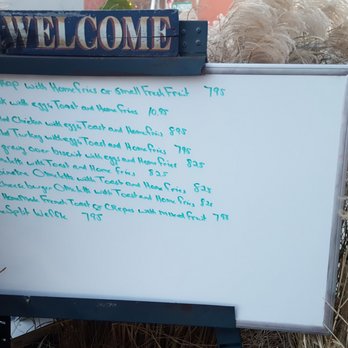 WELCOME
with Homefries or small Fresh Fruit 795
with eggs Toast and Home fries 1095
Chicken with eggs Toast and Homefries 895
Turkey with eggs Toast and Homefries 795
gravy over biscuit with eggs and Home fries 825
with Toast and Home fries 825
Omelette with Toast and Home fries 825
cheeseburger Omelette with Toast and Home fries 825
HomeMade French Toast & Crepes with mixed fruit 795
Split 795